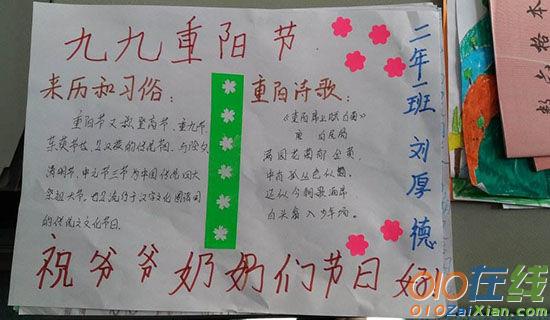 九九重阳节
来历和习俗：
重阳节又叫登高节、重九节、
茱萸节也是汉族的传统节日,与除夕
清明节、中元节三节为中国传统四大
祭祖大节。也是流行于汉字文化圈诸国
的传统文化节日。
重阳诗歌：
唐 白居易
满园花菊郁金黄，
中有孤丛色似霜。
还似今朝歌酒席
白头翁入少年场。
二年一班 刘厚德
祝爷爷奶奶们节日好
数学格本
010在线
010ZaiXian.com